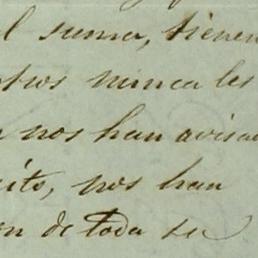 l suma, tienen
tros nunca les
nos han avisa
ito, nos han
on de toda su